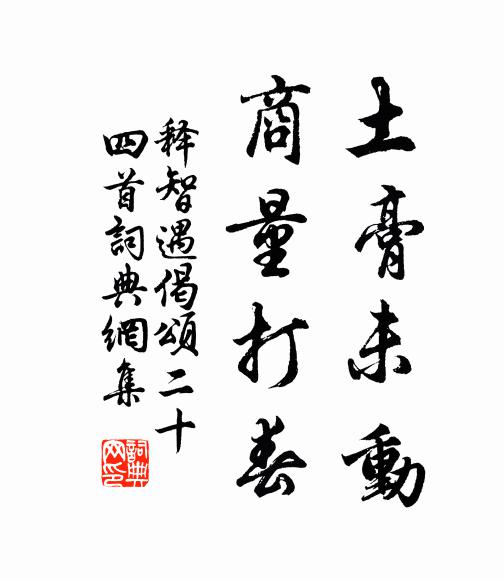 土膏未動
商量打春
释智遇偈頌二十
四首詞典網集
詞典网印